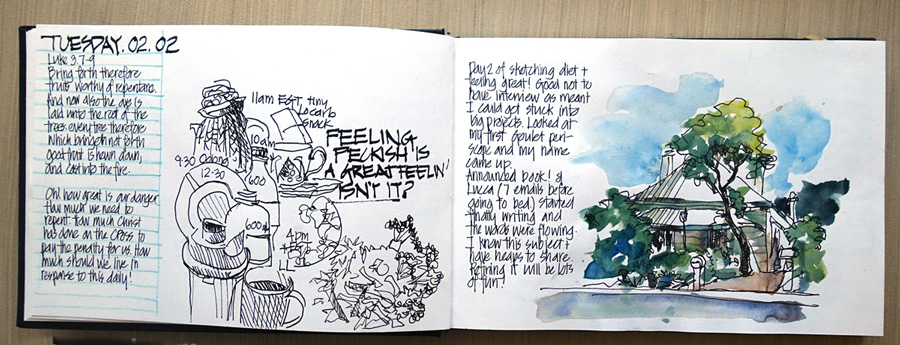 TUESDAY. 02. 02
Luke 3.7-9
Bring forth therefore
fruits worthy of repentance.
And now also the axe is
laid unto the root of the
trees: every tree therefore
which bringeth not forth
good fruit is hewn down,
and cast into the fire.
Oh! how great is our danger
How much we need to
repent. How much Christ
has done on the CROSS to
pay the penalty for us. How
much should we live in
response to this daily!
11am EST, tiny
locarb
snack.
10am
9.30
600
12.30
600
4pm
FEELING
PECKISH IS
A GREAT FEELIN'
ISN'T IT?
Day 2 of sketching diet +
feeling great! Good not to
have interview as meant
I could get stuck into
big projects. Looked at
my first peri-
scope and my name
came up.
Announced book! ej
Lucca (7 emails before
going to bed) started
finally writing and
the words were flowing.
I know this subject +
have heaps to share.
Refining it will be lots
of fun!